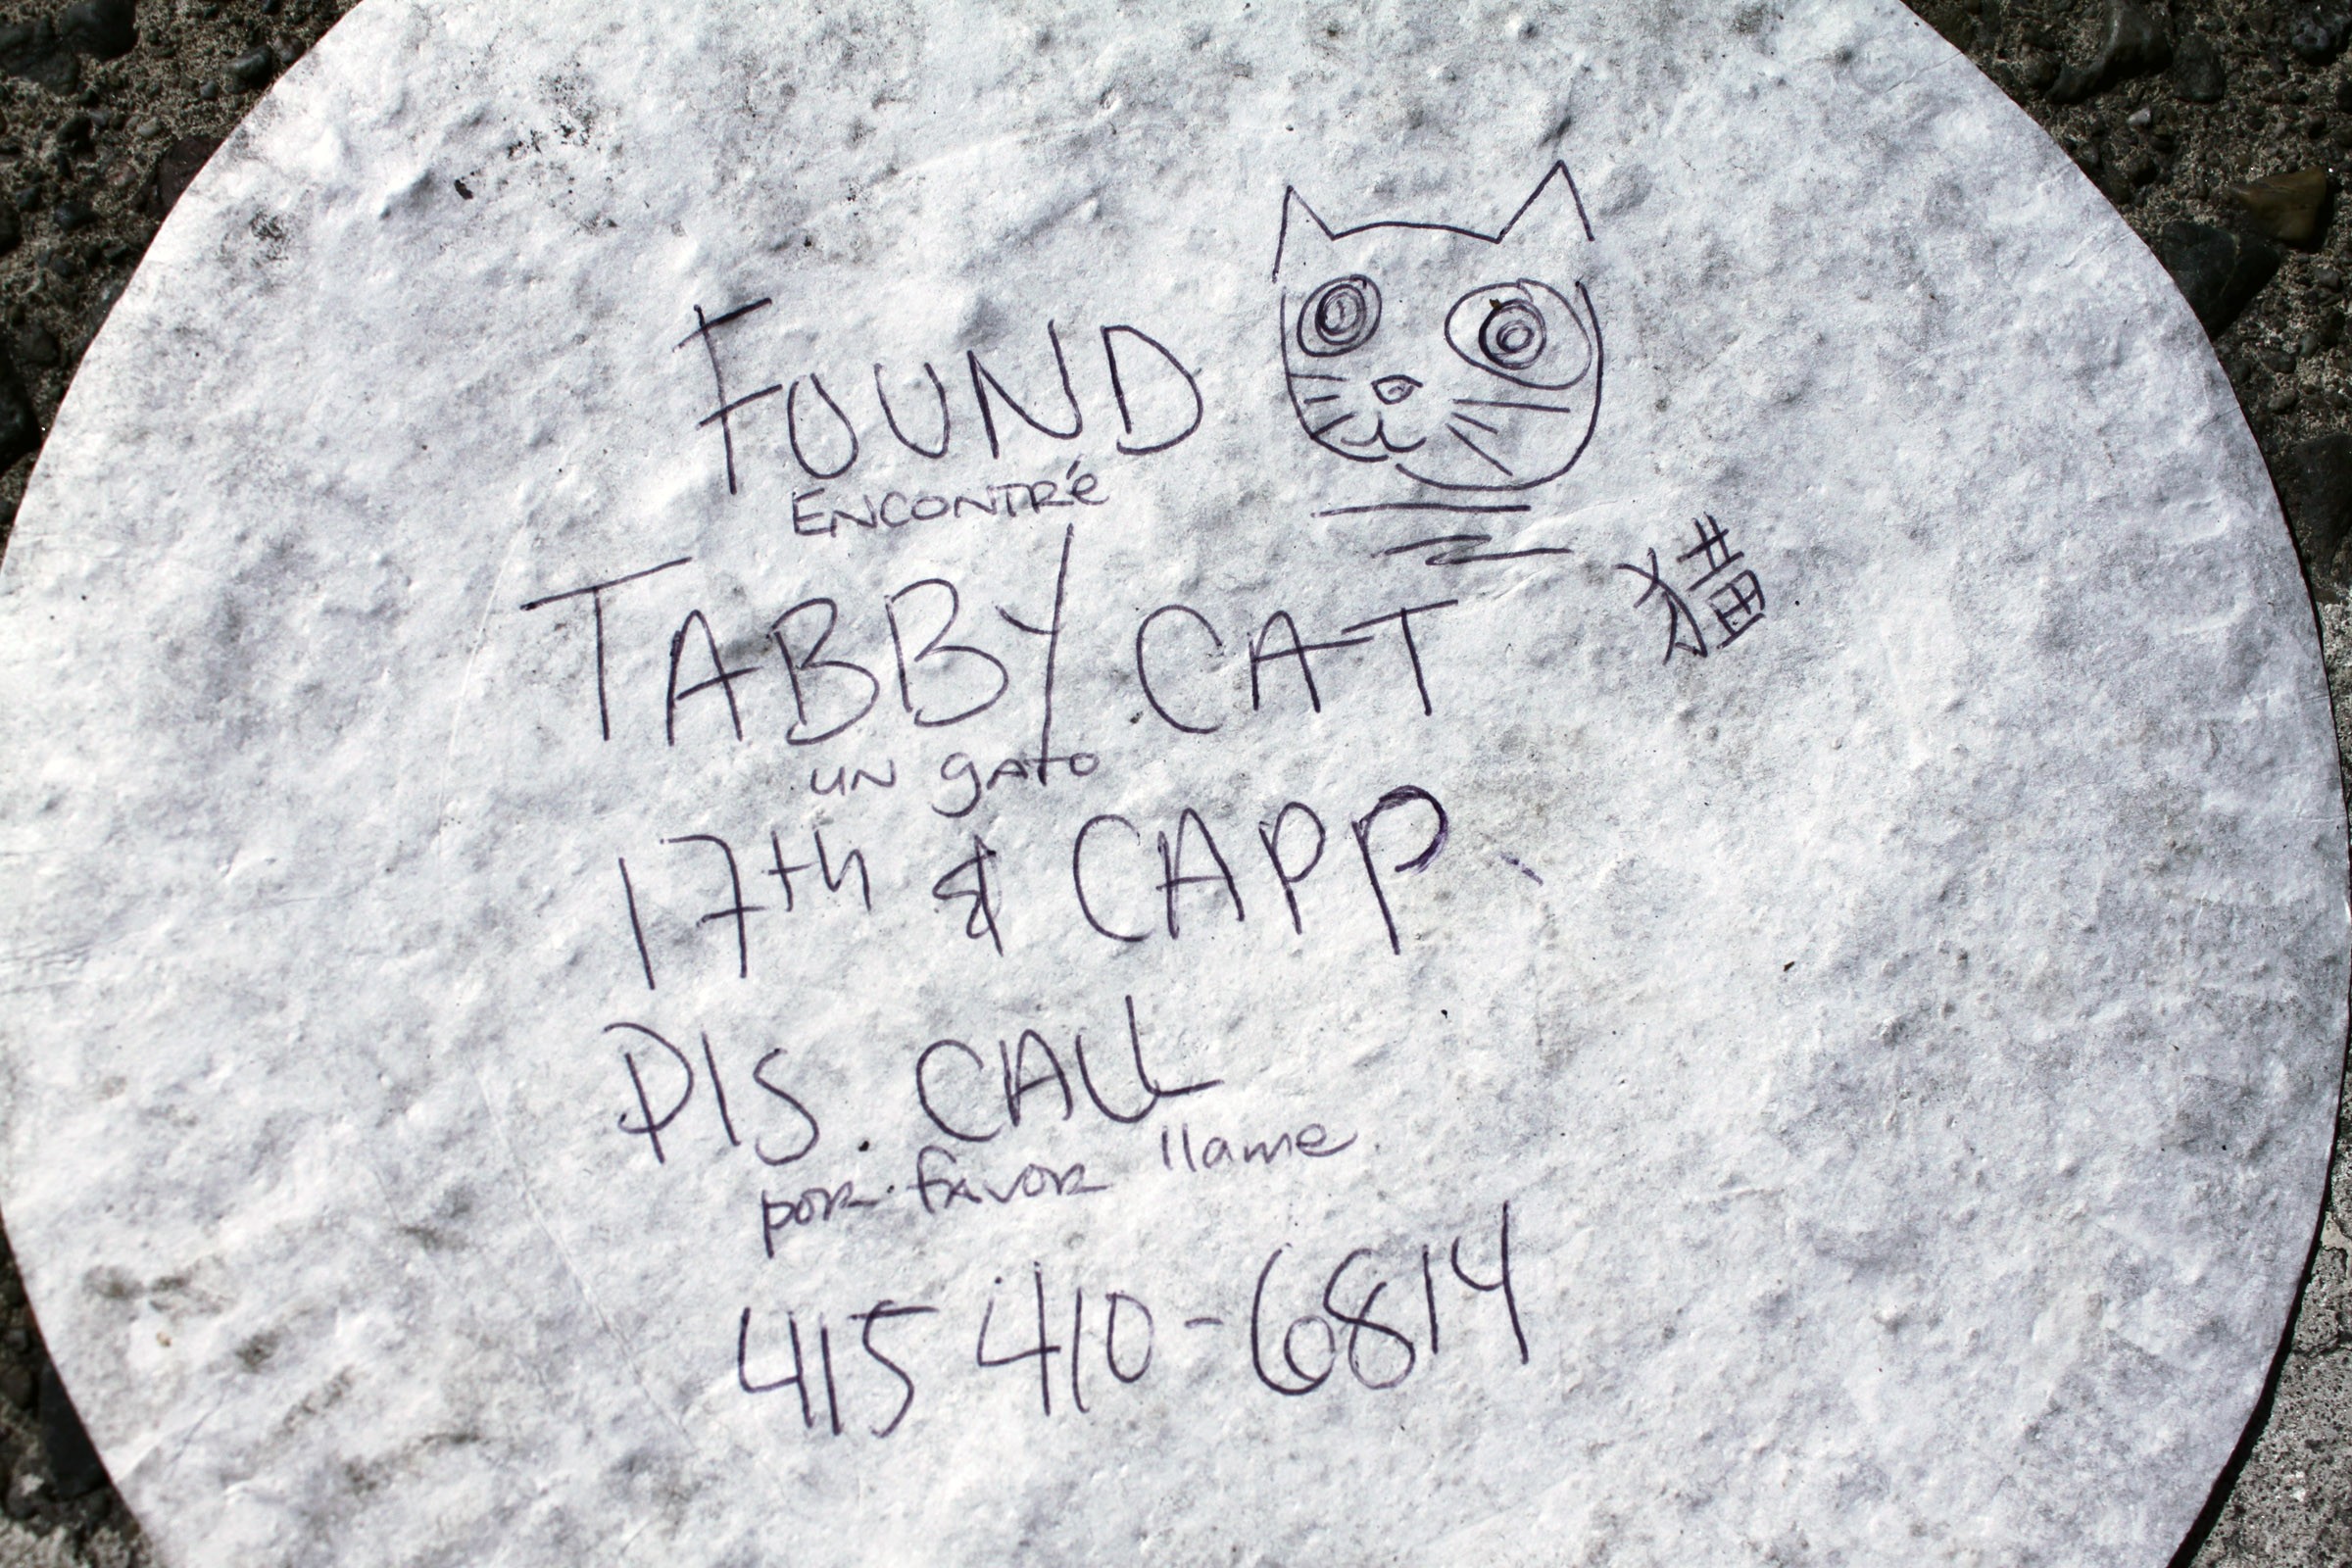 FOUND
ENCONTRé
TABBY CAT 猫
UN gATO
17th & CAPP.
Pls. CALL
poR favoR llame
415 410-6814